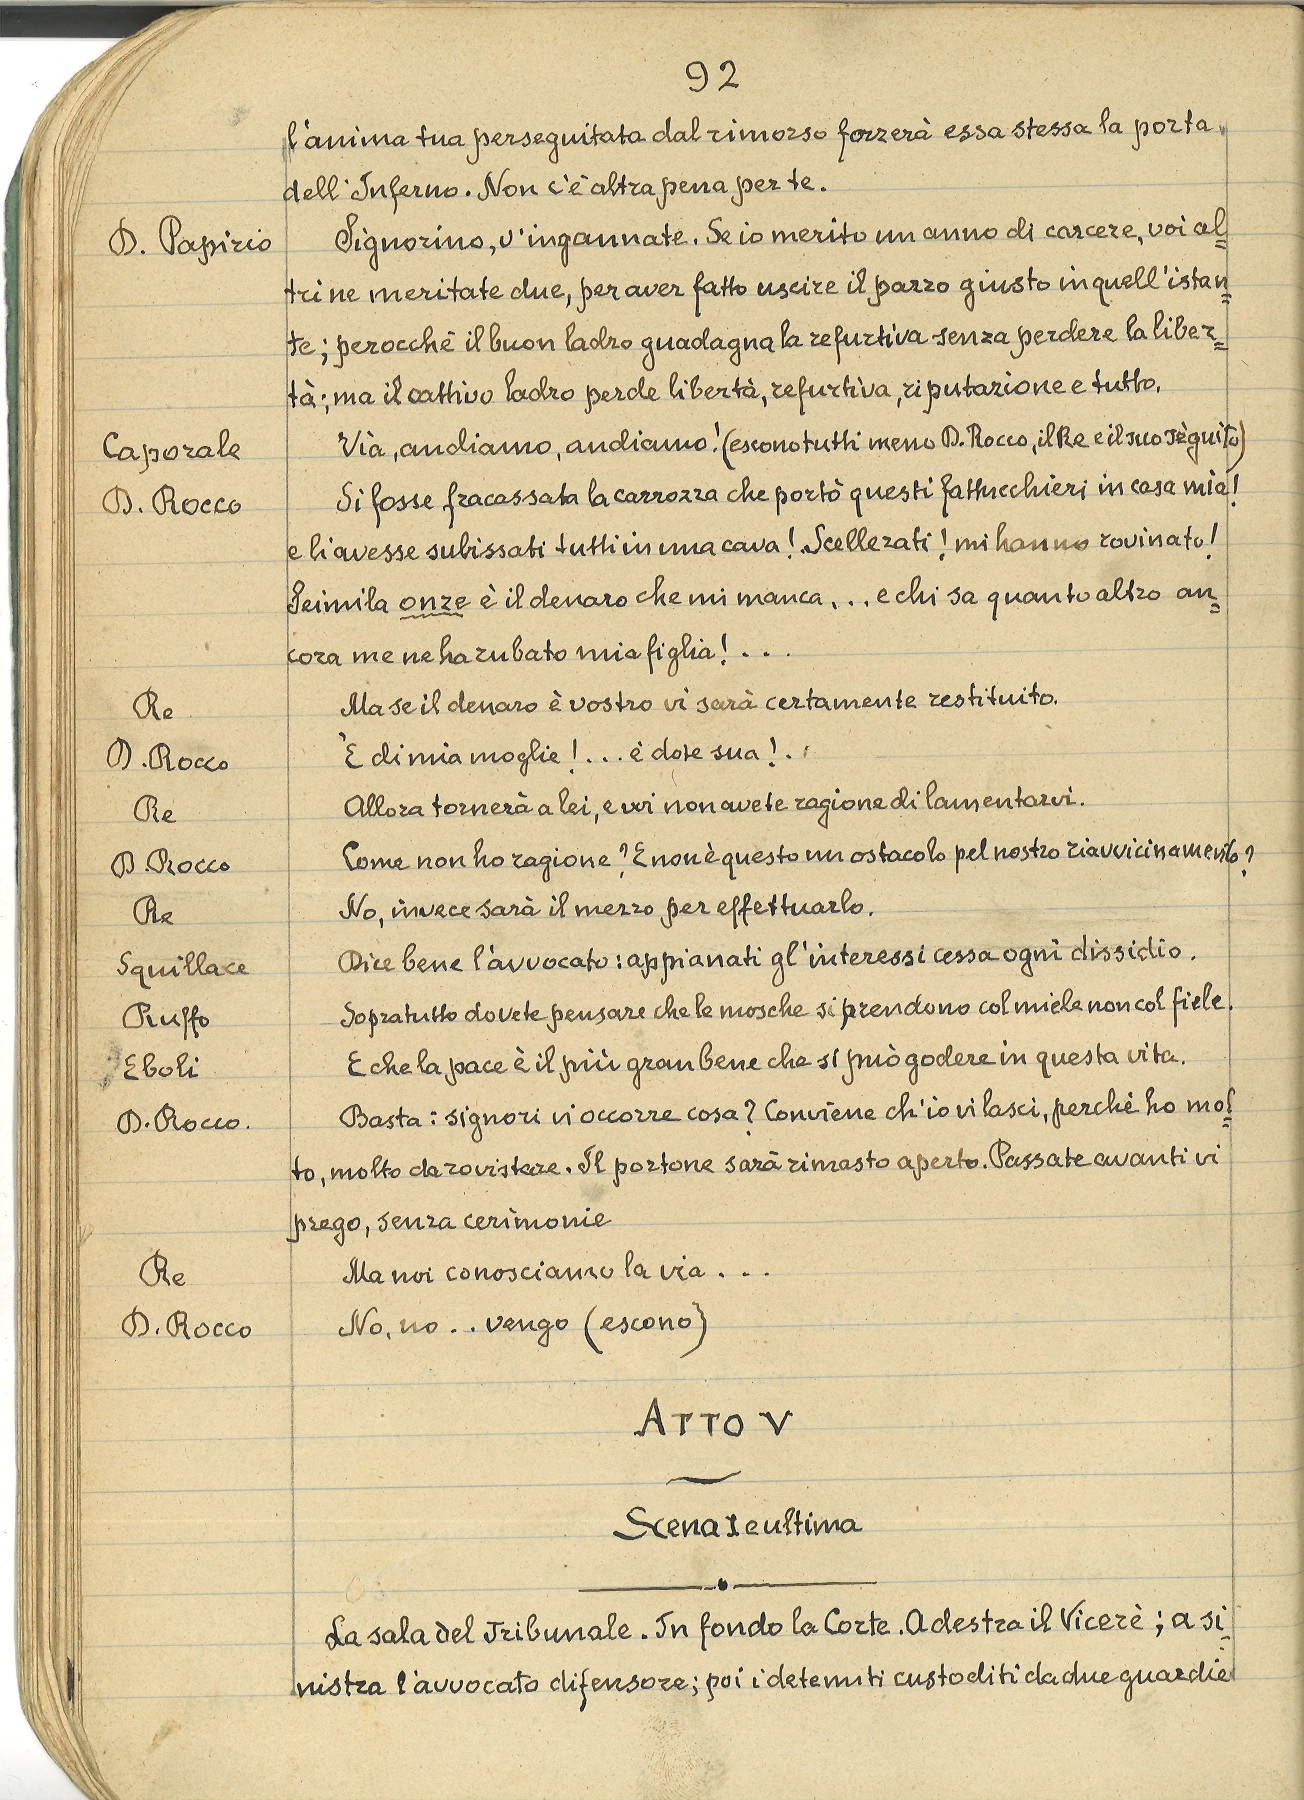 92
l'anima tua perseguitata dal rimorso forzerà essa stessa la porta
dell'Inferno. Non c'è altra pena per te.
D. Papirio Signorino, v'ingannate. Se io merito un anno di carcere, voi al=
tri ne meritate due, per aver fatto uscire il pazzo giusto in quell'istan=
te; perocchè il buon ladro guadagna la refurtiva senza perdere la liber=
tà; ma il cattivo ladro perde libertà, refurtiva, riputazione e tutto.
Caporale Via, andiamo, andiamo! (escono tutti meno D. Rocco, il Re e il suo sèguito)
D. Rocco Si fosse fracassata la carrozza che portò questi fattucchieri in casa mia!
e li avesse subissati tutti in una cava! Scellerati! mi hanno rovinato!
Seimila onze è il denaro che mi manca... e chi sa quanto altro an=
cora me ne ha rubato mia figlia!...
Re Ma se il denaro è vostro vi sarà certamente restituito.
D. Rocco È di mia moglie!... è dote sua!..
Re Allora tornerà a lei, e voi non avete ragione di lamentarvi.
D. Rocco Come non ho ragione? E non è questo un ostacolo pel nostro riavvicinamento?
Re No, invece sarà il mezzo per effettuarlo.
Squillace Dice bene l'avvocato: appianati gl'interessi cessa ogni dissidio.
Ruffo Sopratutto dovete pensare che le mosche si prendono col miele non col fiele.
Eboli E che la pace è il più gran bene che si può godere in questa vita.
D. Rocco. Basta: signori vi occorre cosa? Conviene ch'io vi lasci, perchè ho mol=
to, molto da rovistare. Il portone sarà rimasto aperto. Passate avanti vi
prego, senza cerimonie
Re Ma noi conosciamo la via...
D. Rocco No, no.. vengo (escono)
Atto V
Scena I e ultima
La sala del Tribunale. In fondo la Corte. A destra il Vicerè; a si=
nistra l'avvocato difensore; poi i detenuti custoditi da due guardie